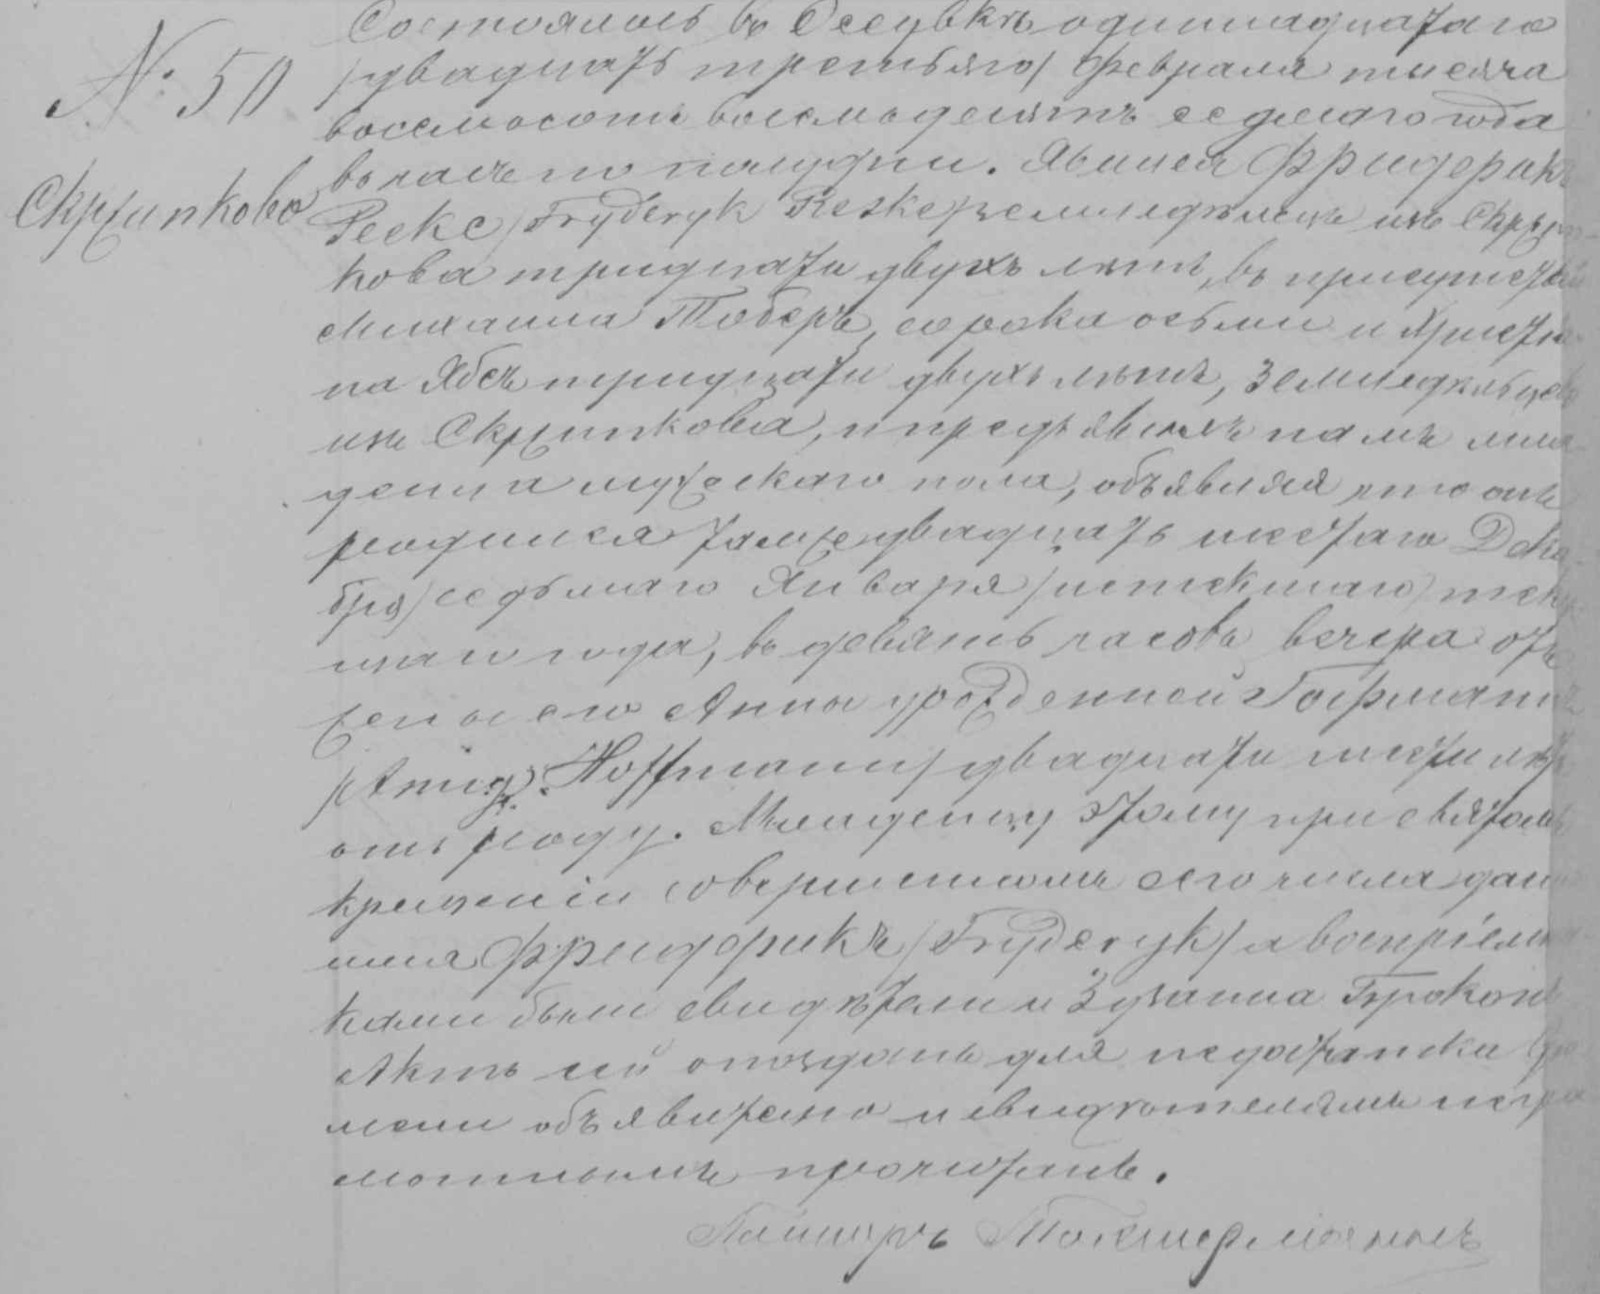 № 50
Скржипково
Состоялось въ Осувкѣ одиннадцатаго
/двадцать третьяго/ Февраля тысяча
восемьсотъ восемьдесятъ седьмаго года
въ часъ по полудни. Явился Фридерикъ
Реске /Fryderyk Reske/ земледѣлецъ изъ Скржип
кова тридцати двухъ лѣтъ, въ присутствіи
Михаила Тоберъ, сорока осьми и Христіа
на Ябсъ тридцати двухъ лѣтъ, земледѣльцевъ
изъ Скржипкова, и предъявилъ намъ мла
денца мужескаго пола, объявляя что онъ
родился тамже двадцать шестаго Дека
бря /седьмаго Января/ истекшаго /теку
щаго года, въ девять часовъ вечера отъ
жены его Анны урожденной Гофманъ
/Anny Hoffmann/ двадцати шести лѣтъ
отъ роду. Младенцу этому при святомъ
крещеніи совершенномъ сего числа дано
имя Фридерикъ /Fryderyk/ а воспріемни
ками были свидѣтели и Зузанна Броконъ
Актъ сей опозданъ для недостатка вре
мени объявителю и свидѣтелямъ негра
мотнымъ прочитанъ.
Пасторъ